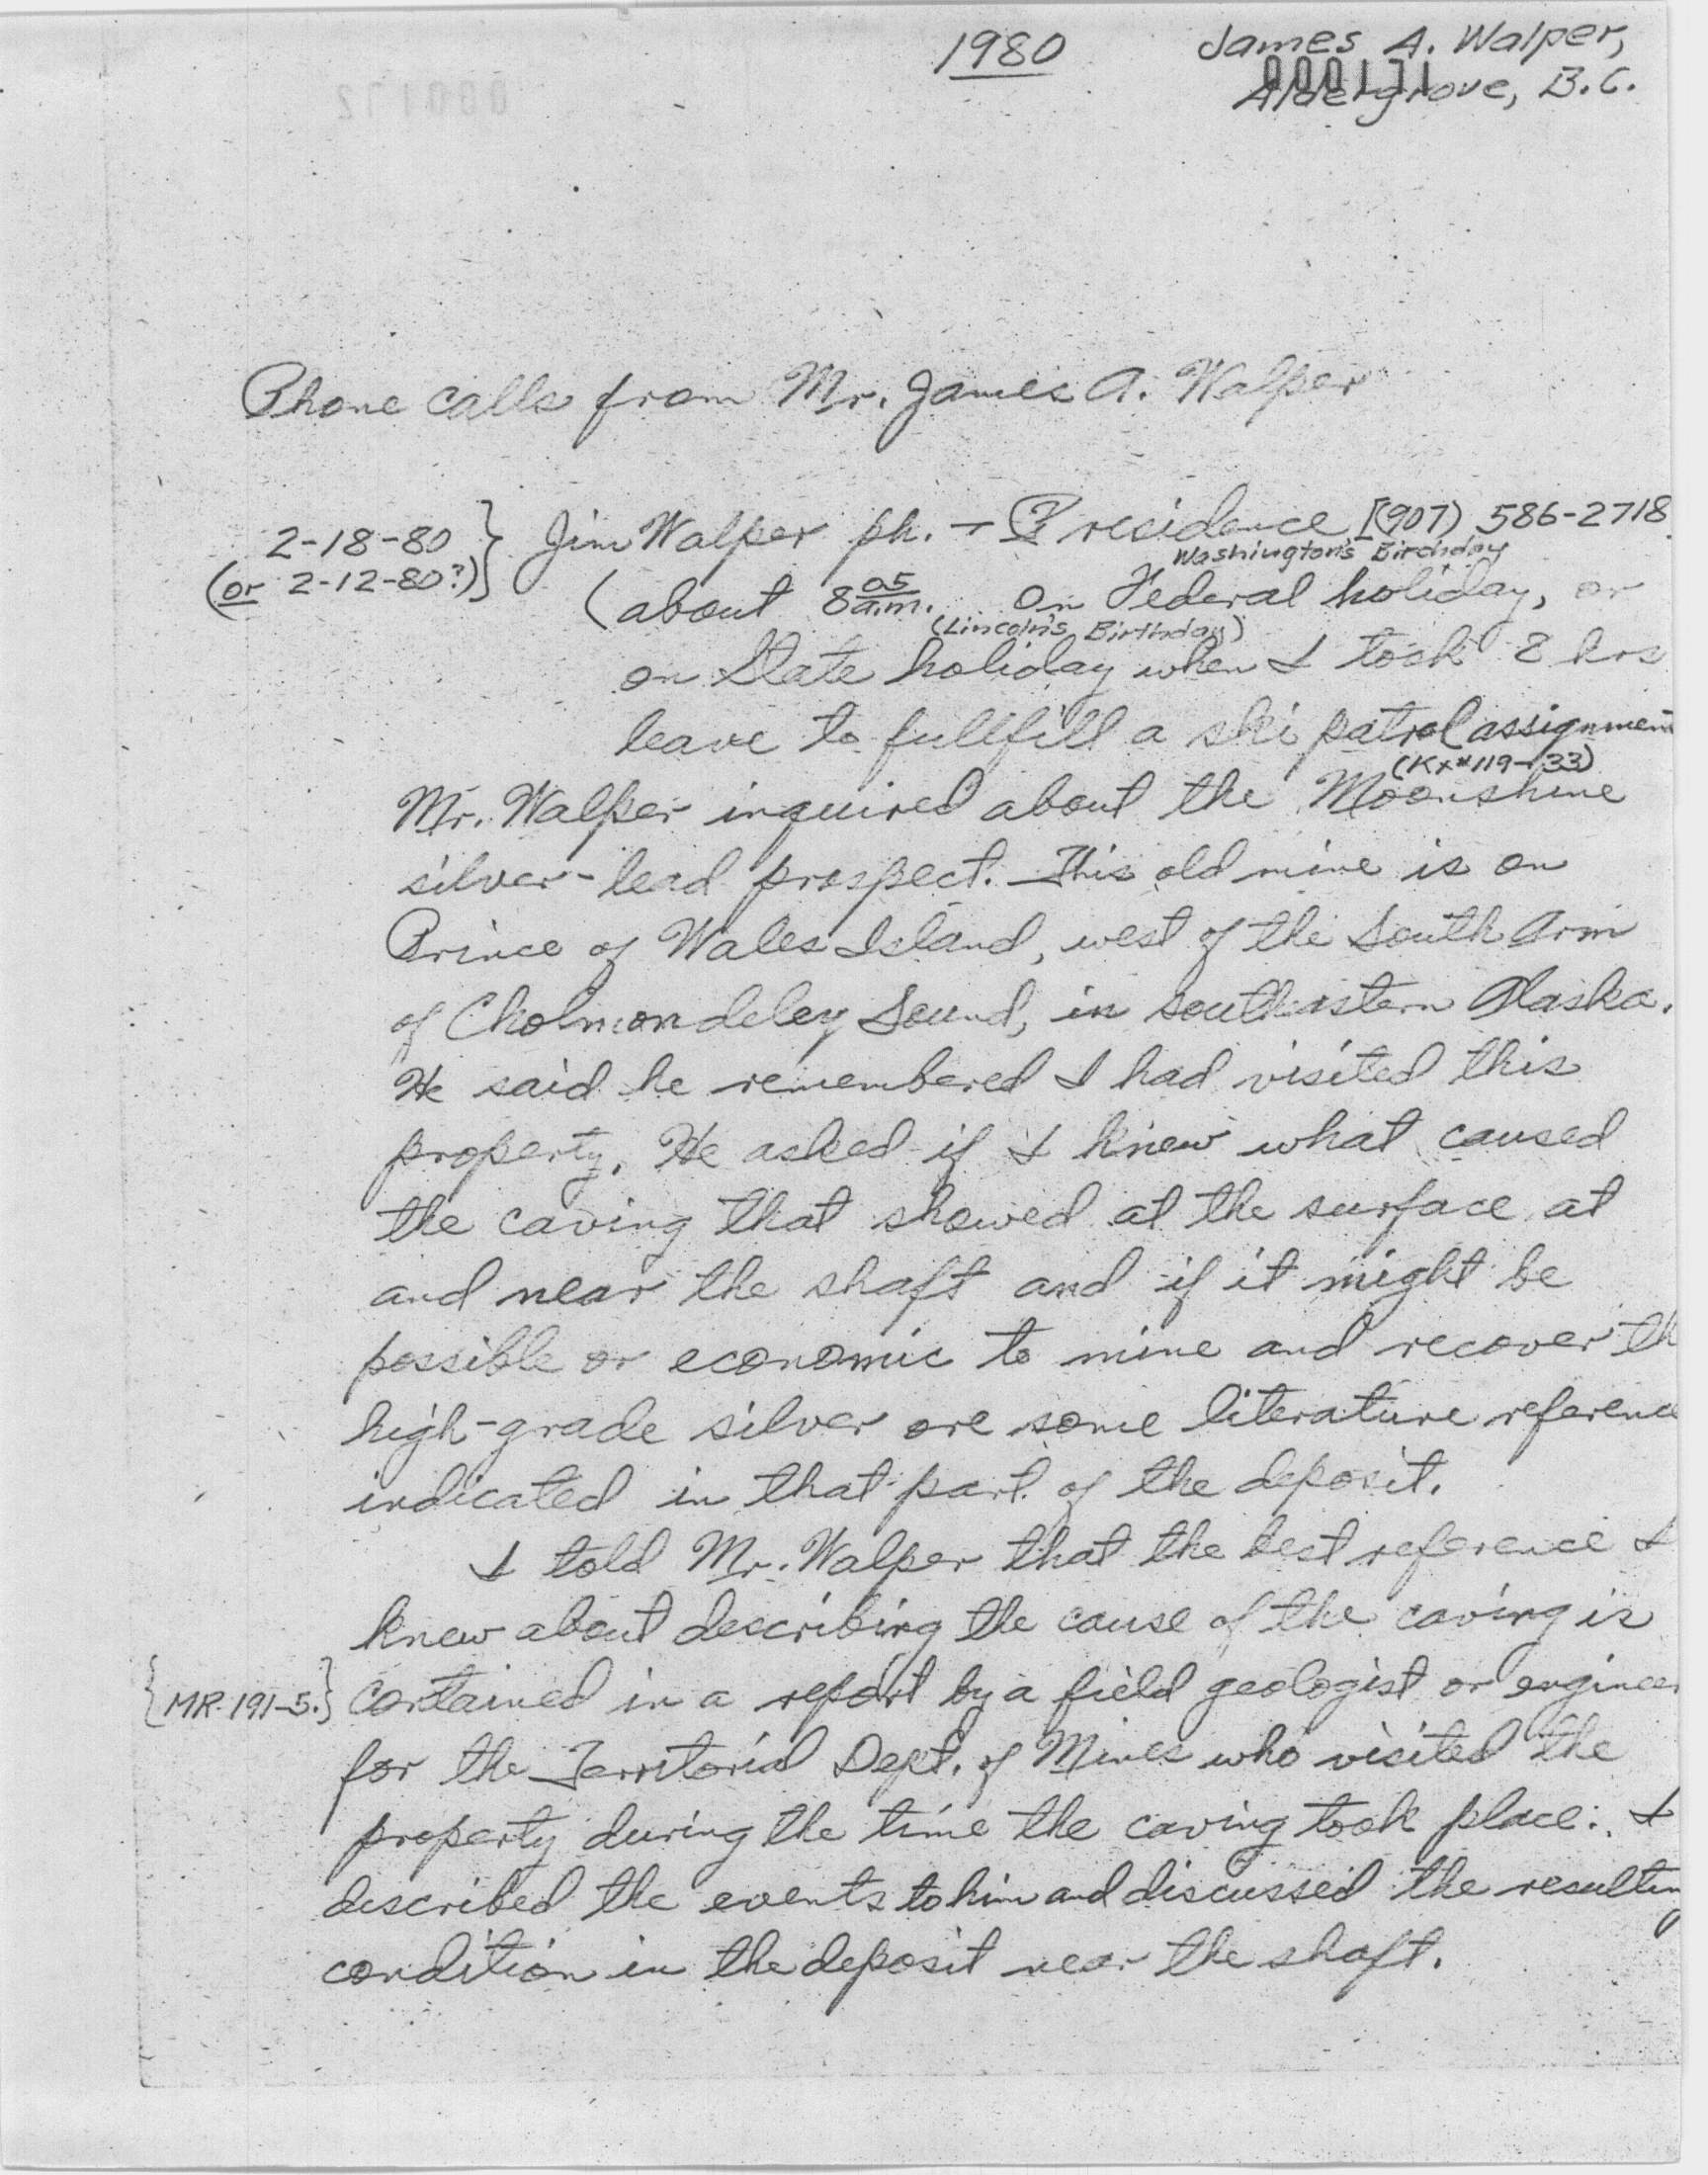 1980
James A. Walper,
000171
Aldergrove, B.C.
000172
Phone calls from Mr. James A. Walper
2-18-80
(or 2-12-80?)
Jim Walper ph. → residence [(907) 586-2718
Washington's Birthday
(about 8 05 a.m. on Federal holiday, or
(Lincoln's Birthday)
on State holiday when I took 8 hrs
leave to fullfill a ski patrol assignmen
(Kx#119-33)
Mr. Walper inquired about the Moonshine
silver-lead prospect. This old mine is on
Prince of Wales Island, west of the South Arm
of Cholmondeley Sound, in southeastern Alaska.
He said he remembered I had visited this
property. He asked if I knew what caused
the caving that showed at the surface at
and near the shaft and if it might be
possible or economic to mine and recover th
high-grade silver ore some literature reference
indicated in that part of the deposit.
I told Mr. Walper that the best reference I
knew about describing the cause of the caving is
{MR. 191-5.} contained in a report by a field geologist or engineer
for the Territorial Dept. of Mines who visited the
property during the time the caving took place. I
described the events to him and discussed the resultin
condition in the deposit near the shaft.